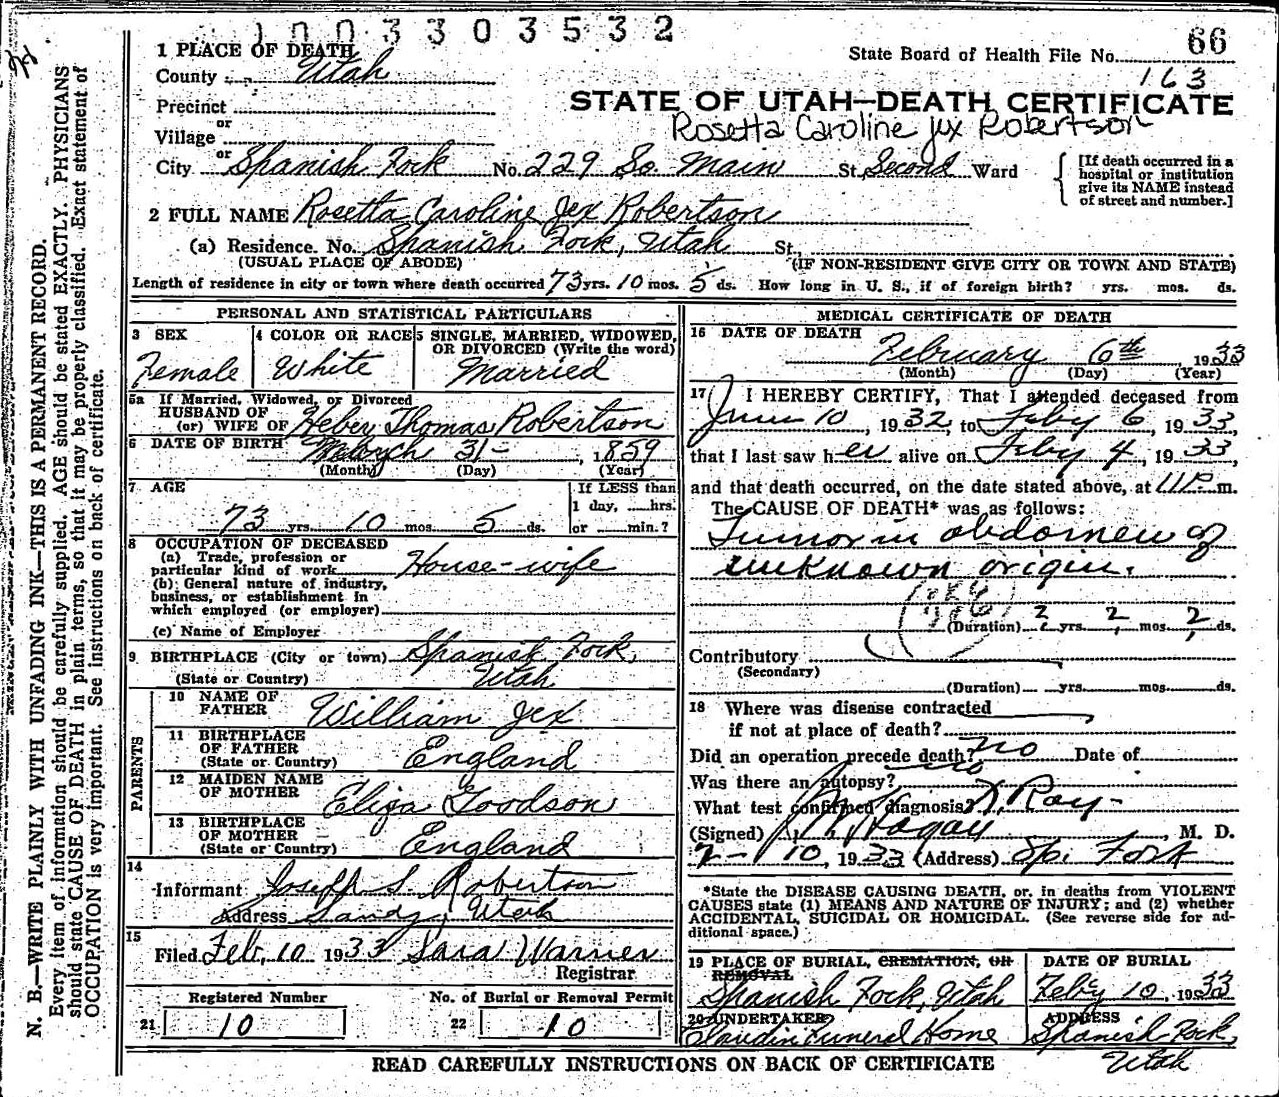 1003303532
66
1 PLACE OF DEATH
State Board of Health File No.
163
County Utah
Precinct
STATE OF UTAH—DEATH CERTIFICATE
Rosetta Caroline Jex Robertson
or
Village
or
City Spanish Fork No. 229 So. Main St. Second Ward
[If death occurred in a hospital or institution give its NAME instead of street and number.]
2 FULL NAME Rosetta Caroline Jex Robertson
(a) Residence. No. Spanish Fork, Utah St.
(USUAL PLACE OF ABODE) (IF NON-RESIDENT GIVE CITY OR TOWN AND STATE)
Length of residence in city or town where death occurred 73 yrs. 10 mos. 5 ds. How long in U. S., if of foreign birth? yrs. mos. ds.
PERSONAL AND STATISTICAL PARTICULARS
3 SEX
Female
4 COLOR OR RACE
White
5 SINGLE, MARRIED, WIDOWED, OR DIVORCED (Write the word)
Married
5a If Married, Widowed, or Divorced
HUSBAND OF
(or) WIFE OF Heber Thomas Robertson
6 DATE OF BIRTH March 31- , 1859
(Month) (Day) (Year)
7 AGE
73 yrs. 10 mos. 5 ds.
If LESS than
1 day, hrs.
or min.?
8 OCCUPATION OF DECEASED
(a) Trade, profession or
particular kind of work House-wife
(b) General nature of industry,
business, or establishment in
which employed (or employer)
(c) Name of Employer
9 BIRTHPLACE (City or town) Spanish Fork,
(State or Country) Utah
PARENTS
10 NAME OF
FATHER William Jex
11 BIRTHPLACE
OF FATHER
(State or Country) England
12 MAIDEN NAME
OF MOTHER Eliza Goodson
13 BIRTHPLACE
OF MOTHER
(State or Country) England
14
Informant Joseph S. Robertson
Address Sandy, Utah
15
Filed Feb. 10 1933 Sara Warner
Registrar
Registered Number No. of Burial or Removal Permit
21 10 22 10
MEDICAL CERTIFICATE OF DEATH
16 DATE OF DEATH
February 6th 1933
(Month) (Day) (Year)
17 I HEREBY CERTIFY, That I attended deceased from
June 10, 1932, to Feby 6, 1933,
that I last saw her alive on Feby 4, 1933,
and that death occurred, on the date stated above, at 11 P. m.
The CAUSE OF DEATH* was as follows:
Tumor in abdomen of
unknown origin.
(Duration) 2 yrs. 2 mos. 2 ds.
Contributory
(Secondary)
(Duration) yrs. mos. ds.
18 Where was disease contracted
if not at place of death?
Did an operation precede death? no Date of
Was there an autopsy? no
What test confirmed diagnosis? X Ray-
(Signed) Hagan, M. D.
2-10, 1933 (Address) Sp. Fork
*State the DISEASE CAUSING DEATH, or, in deaths from VIOLENT
CAUSES state (1) MEANS AND NATURE OF INJURY; and (2) whether
ACCIDENTAL, SUICIDAL OR HOMICIDAL. (See reverse side for additional space.)
19 PLACE OF BURIAL, CREMATION, OR REMOVAL
Spanish Fork, Utah
DATE OF BURIAL
Feby 10, 1933
20 UNDERTAKER
Claudin Funeral Home
ADDRESS
Spanish Fork,
Utah
READ CAREFULLY INSTRUCTIONS ON BACK OF CERTIFICATE
N. B.—WRITE PLAINLY WITH UNFADING INK—THIS IS A PERMANENT RECORD.
Every item of information should be carefully supplied. AGE should be stated EXACTLY. PHYSICIANS
should state CAUSE OF DEATH in plain terms, so that it may be properly classified. Exact statement of
OCCUPATION is very important. See instructions on back of certificate.